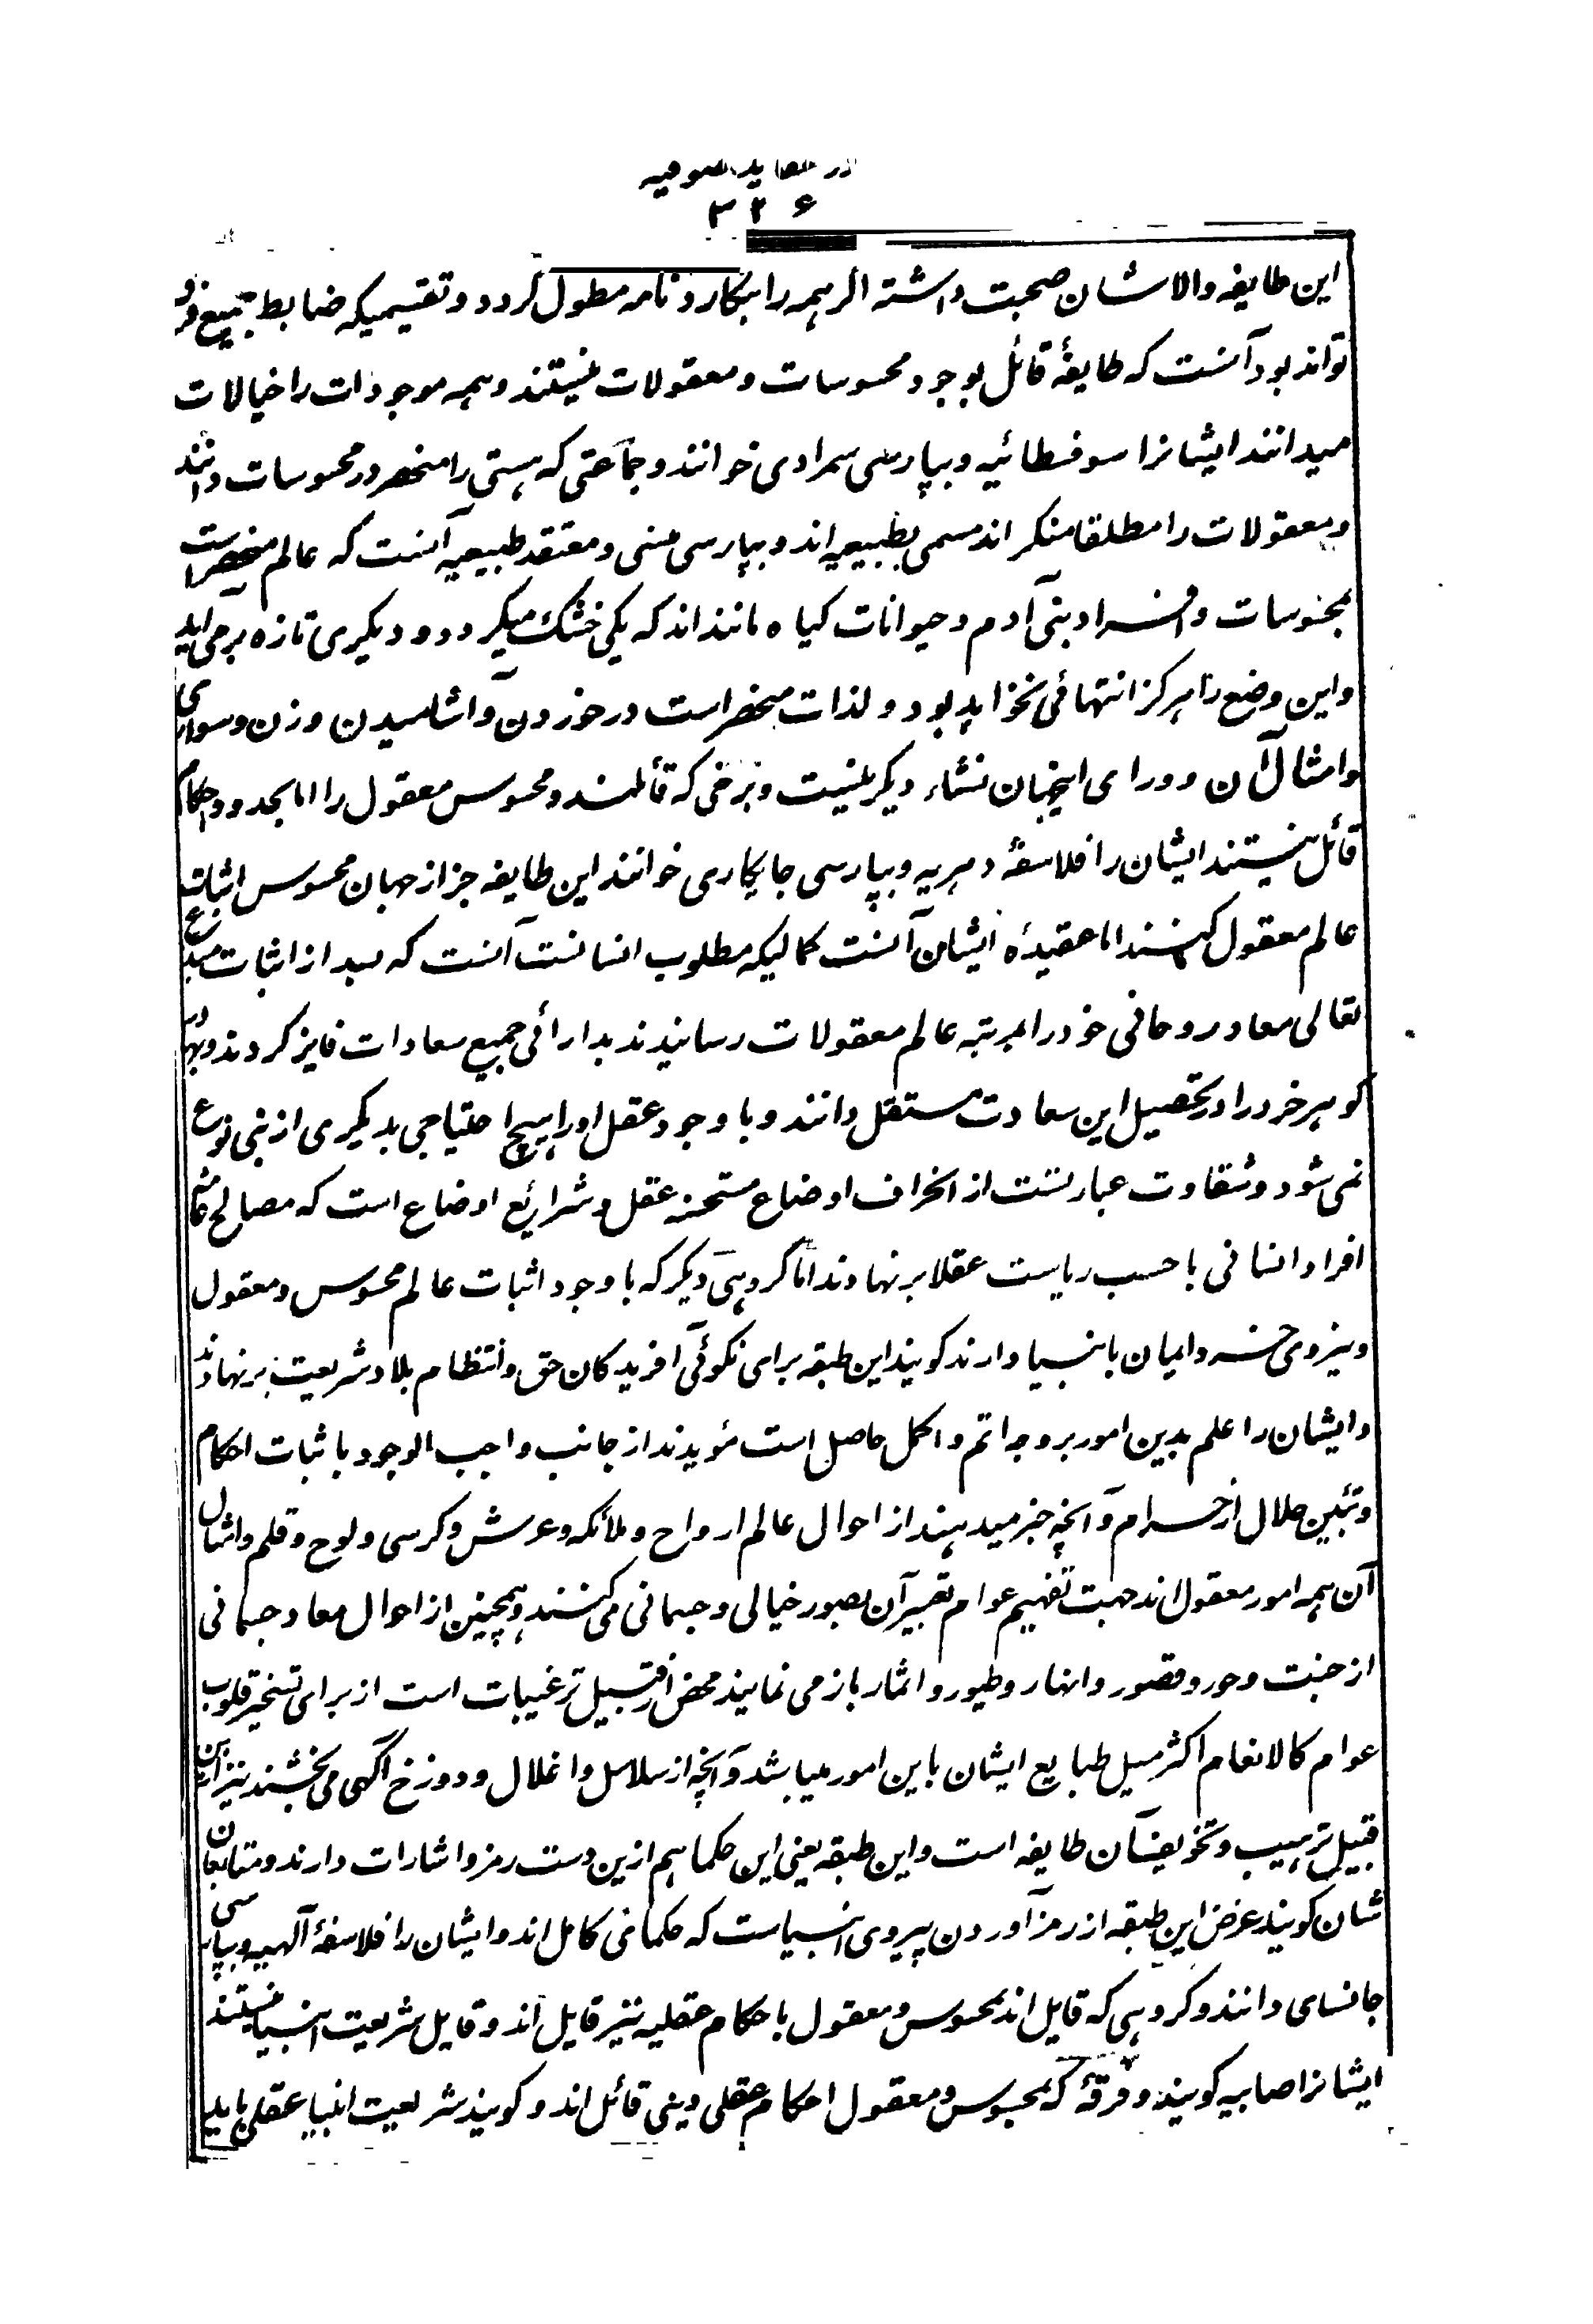 در عقاید صوفیه
۳۲۶
این طایفه والاشان صحبت داشته اگر همه را بنگارد نامه مطول گردد و تقسیمیکه ضابط جمیع فرق
تواند بود آنست که طایفهٔ قائل بوجود محسوسات و معقولات نیستند و همه موجودات را خیالات
میدانند ایشانرا سوفسطائیه و بپارسی سمرادی خوانند و جماعتی که هستی را منحصر در محسوسات دانند
و معقولات را مطلقا منکر اند مسمی بطبیعیه اند و بپارسی منشی و معتقد طبیعیه آنست که عالم منحصر است
بمحسوسات و افراد بنی آدم و حیوانات کیاه مانند اند که یکی خشک میکردد و دیکری تازه برمی آید
و این وضع را هرکز انتهائی نخواهد بود و لذات منحصر است در خوردن و آشامیدن و زن و سواری
و امثال آن و ورای اینجهان نشاء دیکر نیست و برخی که قائلند و محسوس معقول را اما بحدود و احکام
قائل نیستند ایشان را فلاسفهٔ دهریه و بپارسی جایکاری خوانند این طایفه جز از جهان محسوس اثبات
عالم معقول کنند اما عقیدهٔ ایشان آنست کمالیکه مطلوب انسانست آنست که بعد از اثبات مبدع
تعالی معاد روحانی خود را بمرتبه عالم معقولات رسانیدند بدارائی جمیع سعادات فایز کردند و
کوهر خرد را در تحصیل این سعادت مستقل دانند و با وجود عقل او را هیچ احتیاجی بدیکری از بنی نوع
نمی شود و شقاوت عبارتست از انحراف اوضاع مستحسنه عقل و شرائع اوضاع است که مصالح عامه
افراد انسانی با حسب ریاست عقلا بر نهادند اما کروهی دیکر که با وجود اثبات عالم محسوس و معقول
و نیروی حسنه و ایمان بانبیا دارند کویند این طبقه برای نکوئی آفریدکان حق و انتظام بلاد شریعت بر نهادند
و ایشان را علم بدین امور بر وجه اتم و اکمل حاصل است مؤیدند از جانب واجب الوجود باثبات احکام
و تبیین حلال از حرام و آنچه خبر میدهند از احوال عالم ارواح و ملائکه و عرش و کرسی و لوح و قلم و امثال
آن همه امور معقول اند جهت تفهیم عوام تعبیر آن بصور خیالی و جسمانی می کنند و همچنین از احوال معاد جسمانی
از جنت و حور و قصور و انهار و طیور و اثمار باز می نمایند محض از قبیل ترغیبات است از برای تسخیر قلوب
عوام کالانعام اکثر میل طبایع ایشان باین امور میباشد و آنچه از سلاسل و اغلال و دوزخ آکهی می بخشند نیز ازین
قبیل ترهیب و تخویف آن طایفه است و این طبقه یعنی این حکما هم ازین دست رمز و اشارات دارند و متابعان
شان کویند غرض این طبقه از رمز آوردن پیروی انبیاست که حکمائی کامل اند و ایشان را فلاسفهٔ آلهیه و بپارسی
جانسای دانند و کروهی که قایل اند بمحسوس و معقول باحکام عقلیه نیز قایل اند و قایل شریعت انبیا نیستند
ایشانرا صابیه کویند و فرقهٔ که بمحسوس و معقول احکام عقلی دینی قائل اند و کویند شریعت انبیا عقلی باید